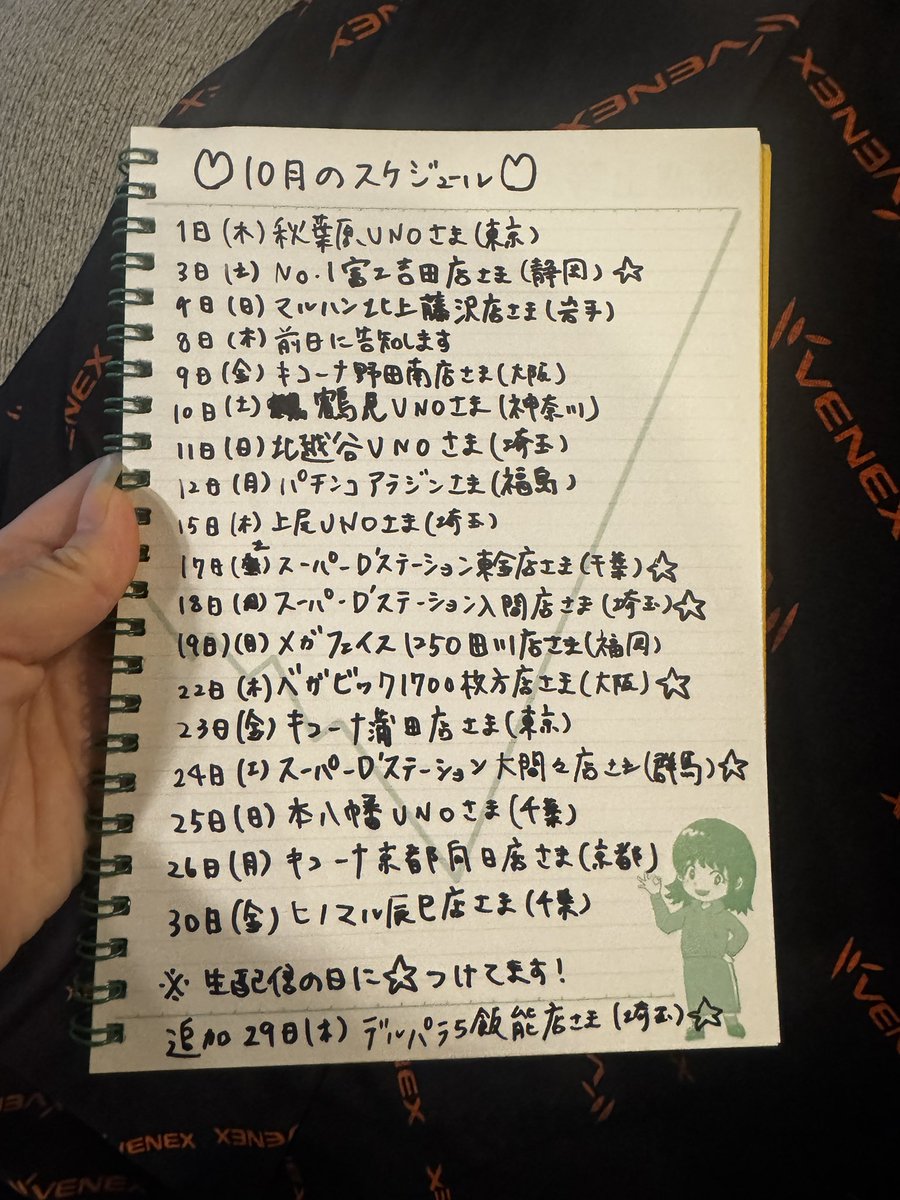 10月のスケジュール
1日(木)秋葉原UNOさま(東京)
3日(土)No.1富士吉田店さま(静岡)☆
4日(日)マルハン北上藤沢店さま(岩手)
8日(木)前日に告知します
9日(金)キコーナ野田南店さま(大阪)
10日(土)鶴見UNOさま(神奈川)
11日(日)北越谷UNOさま(埼玉)
12日(月)パチンコアラジンさま(福島)
15日(木)上尾UNOさま(埼玉)
17日(土)スーパーD'ステーション東金店さま(千葉)☆
18日(日)スーパーD'ステーション入間店さま(埼玉)☆
19日)(日)メガフェイス1250田川店さま(福岡)
22日(木)ベガビック1700枚方店さま(大阪)☆
23日(金)キコーナ蒲田店さま(東京)
24日(土)スーパーD'ステーション大間々店さま(群馬)☆
25日(日)本八幡UNOさま(千葉)
26日(月)キコーナ京都向日店さま(京都)
30日(金)ヒノマル辰巳店さま(千葉)
※生配信の日に☆つけてます!
追加 29日(木)デルパラ5飯能店さま(埼玉)☆
VENEX
VENEX
VENEX
VENEX
VENEX
VENEX
VENEX
VENEX